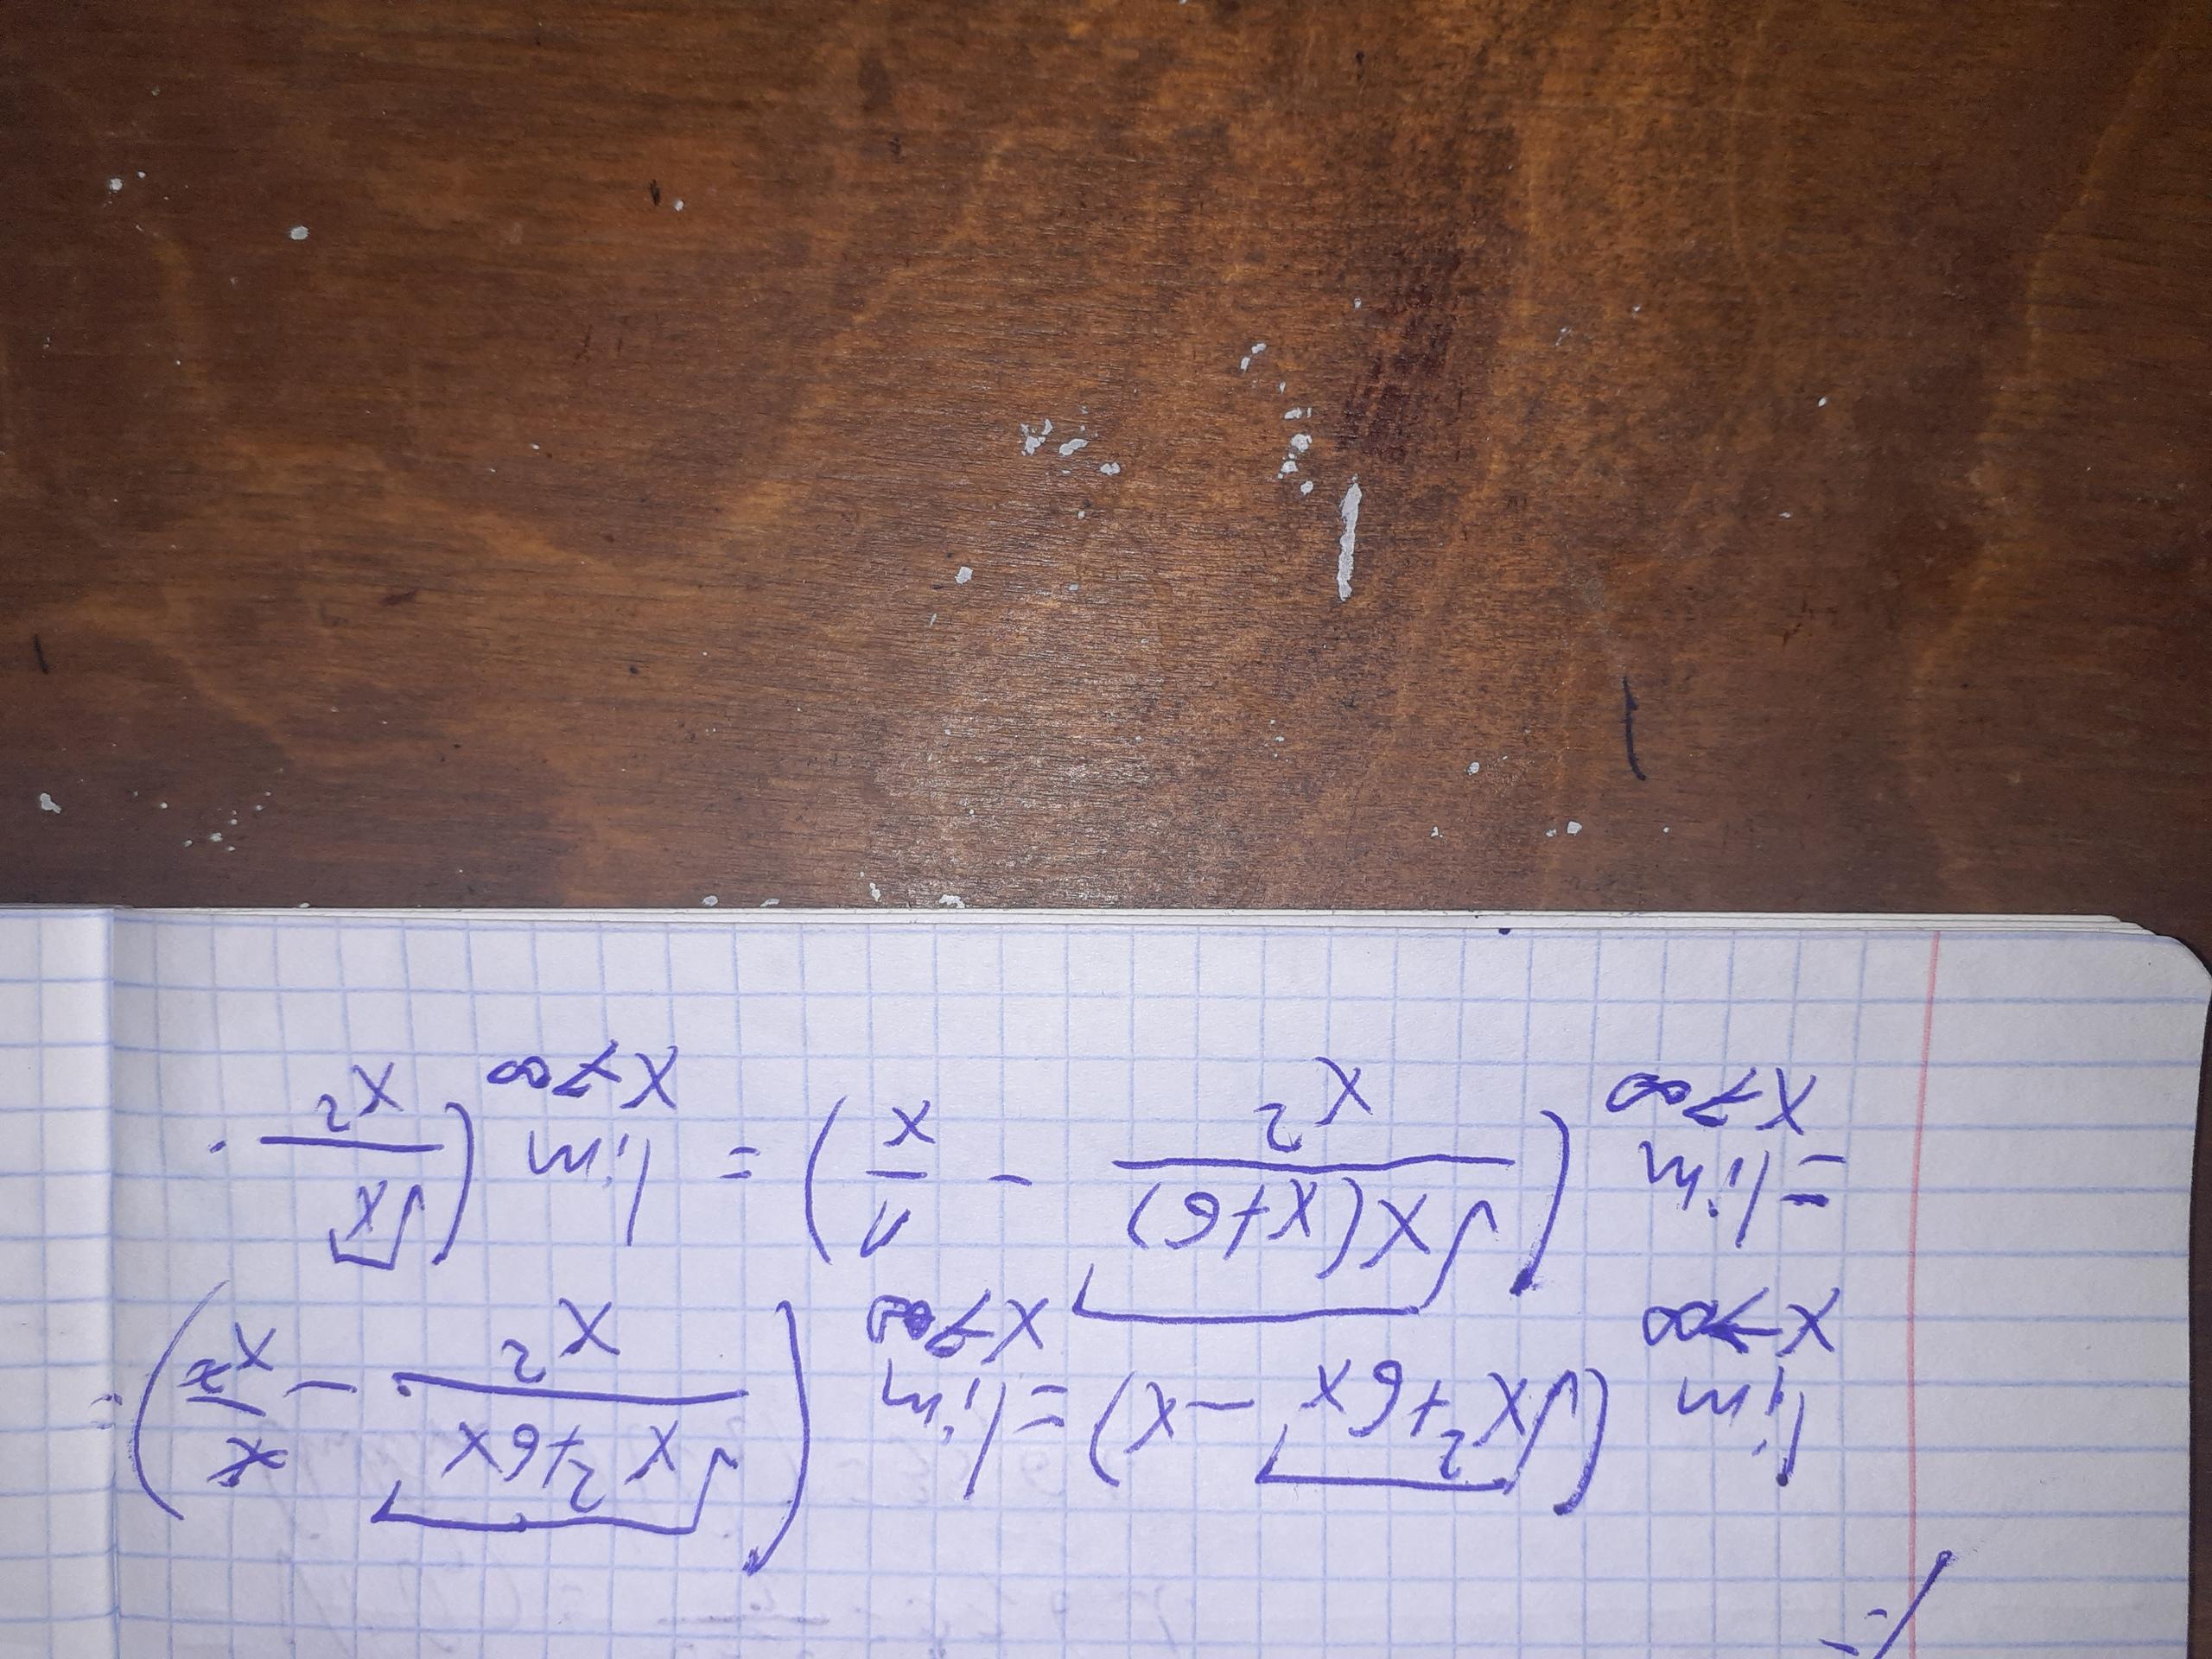 lim x→∞ (√(x²+6x) - x) = lim x→∞ (√(x²+6x)/x² - x/x²) =
= lim x→∞ (√(x(x+6))/x² - 1/x) = lim x→∞ (√x/x² ·